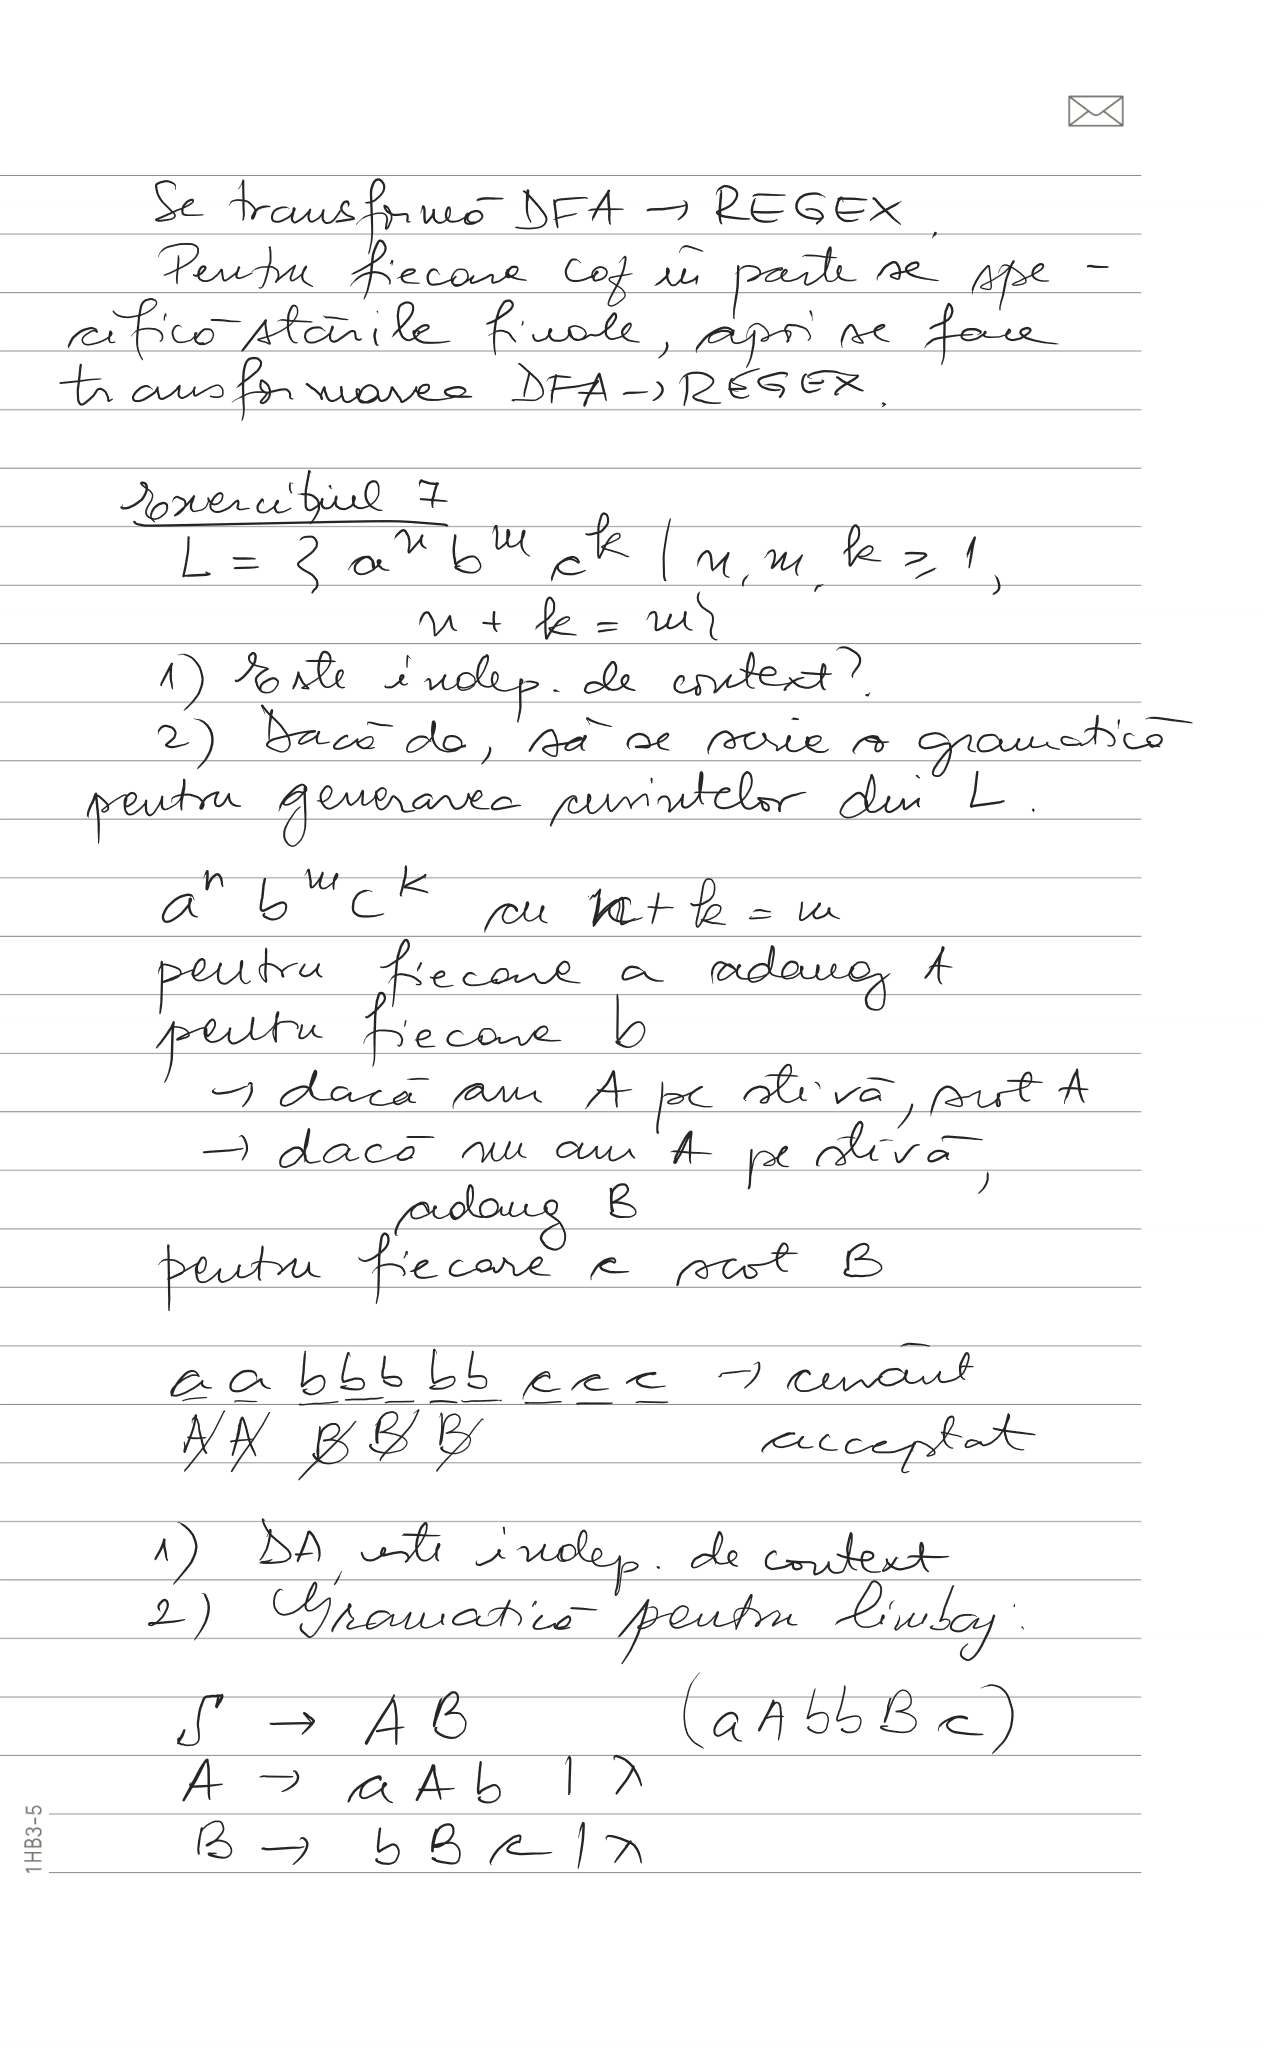 Se transformă DFA → REGEX.
Pentru fiecare caz în parte se spe-
cifică stările finale, apoi se face
transformarea DFA → REGEX.
Exercițiul 7
L = { a^n b^m c^k | n, m, k ≥ 1,
n + k = m}
1) Este indep. de context?
2) Dacă da, să se scrie o gramatică
pentru generarea cuvintelor din L.
a^n b^m c^k cu n + k = m
pentru fiecare a adaug A
pentru fiecare b
→ dacă am A pe stivă, scot A
→ dacă nu am A pe stivă,
adaug B
pentru fiecare c scot B
a a b b b b b c c c → cuvânt
A A B B B acceptat
1) DA, este indep. de context
2) Gramatică pentru limbaj:
S → A B (a A b b B c)
A → a A b | λ
B → b B c | λ
1HB3-5